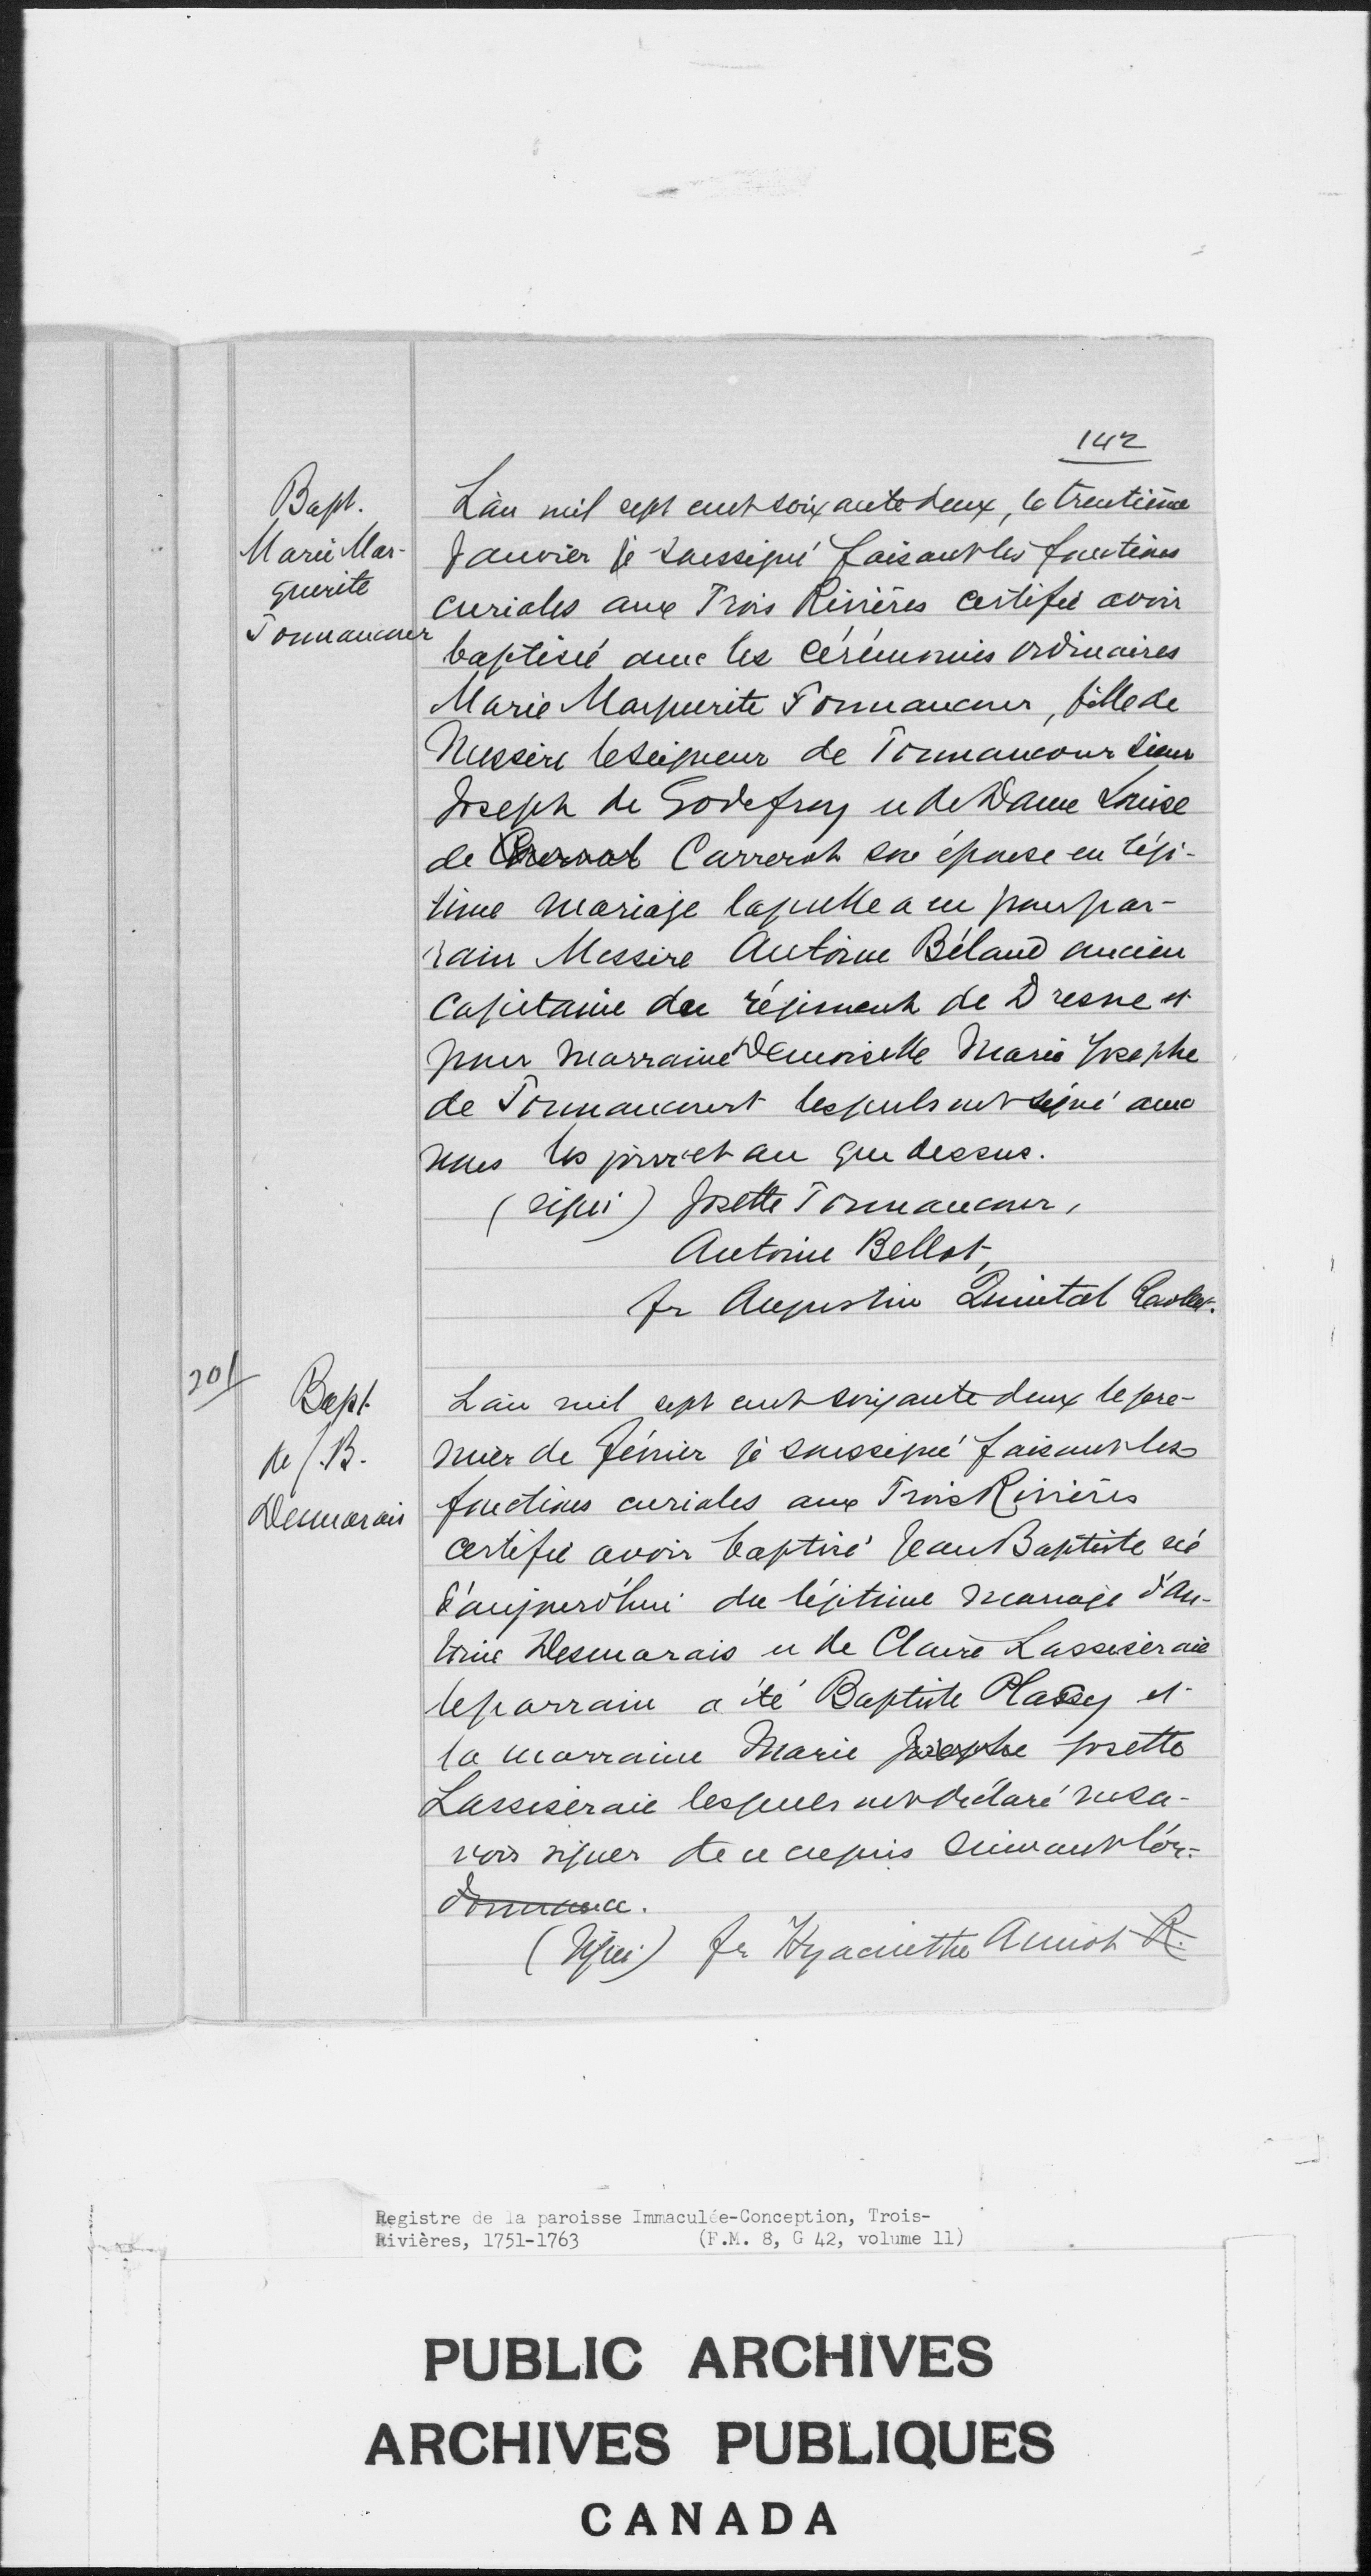 142
Bapt.
Marie Mar-
guerite
Tonnancour
L'an mil sept cent soixante deux, le trentième
Janvier je soussigné faisant les fonctions
curiales aux Trois Rivières certifie avoir
baptisé avec les cérémonies ordinaires
Marie Marguerite Tonnancour, fille de
Messire le seigneur de Tonnancour sieur
Joseph de Godefroy et de Dame Louise
de Carrerot son épouse en légi-
time mariage laquelle a eu pour par-
rain Messire Antoine Béland ancien
Capitaine du régiment de Dresne et
pour marraine Demoiselle Marie Josephe
de Tonnancourt lesquels ont signé avec
nous les jour et an que dessus.
(signé) Josette Tonnancour,
Antoine Bellot,
fr Augustin Quintal
201
Bapt.
de J.B.
Desmarais
L'an mil sept cent soixante deux le pre-
mier de Février je soussigné faisant les
fonctions curiales aux Trois Rivières
certifie avoir baptisé Jean Baptiste né
d'aujourd'hui du légitime mariage d'An-
toine Desmarais et de Claire Lasseseraie
le parrain a été Baptiste Plassy et
la marraine Marie Josephe Josette
Lassiseraie lesquels ont déclaré ne sa-
voir signer de ce requis suivant l'or-
donnance.
(Signé) fr Hyacinthe Amiot R.
Registre de la paroisse Immaculée-Conception, Trois-
Rivières, 1751-1763 (F.M. 8, G 42, volume 11)
PUBLIC ARCHIVES
ARCHIVES PUBLIQUES
CANADA